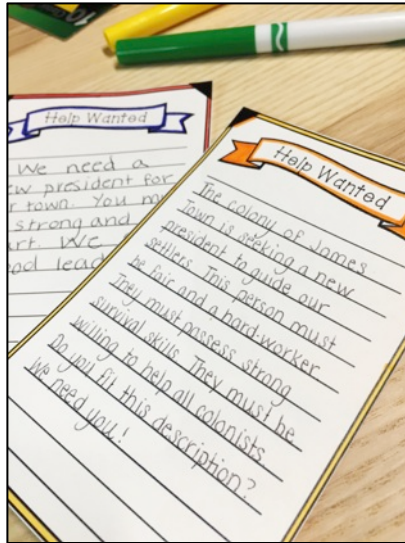 Help Wanted
We need a
president for
town. You
strong and
We
lead
Help Wanted
The colony of James
Town is seeking a new
president to guide our
settlers. This person must
be fair and a hard-worker
They must possess strong
survival skills. They must be
willing to help all colonists
Do you fit this description?
We need you!